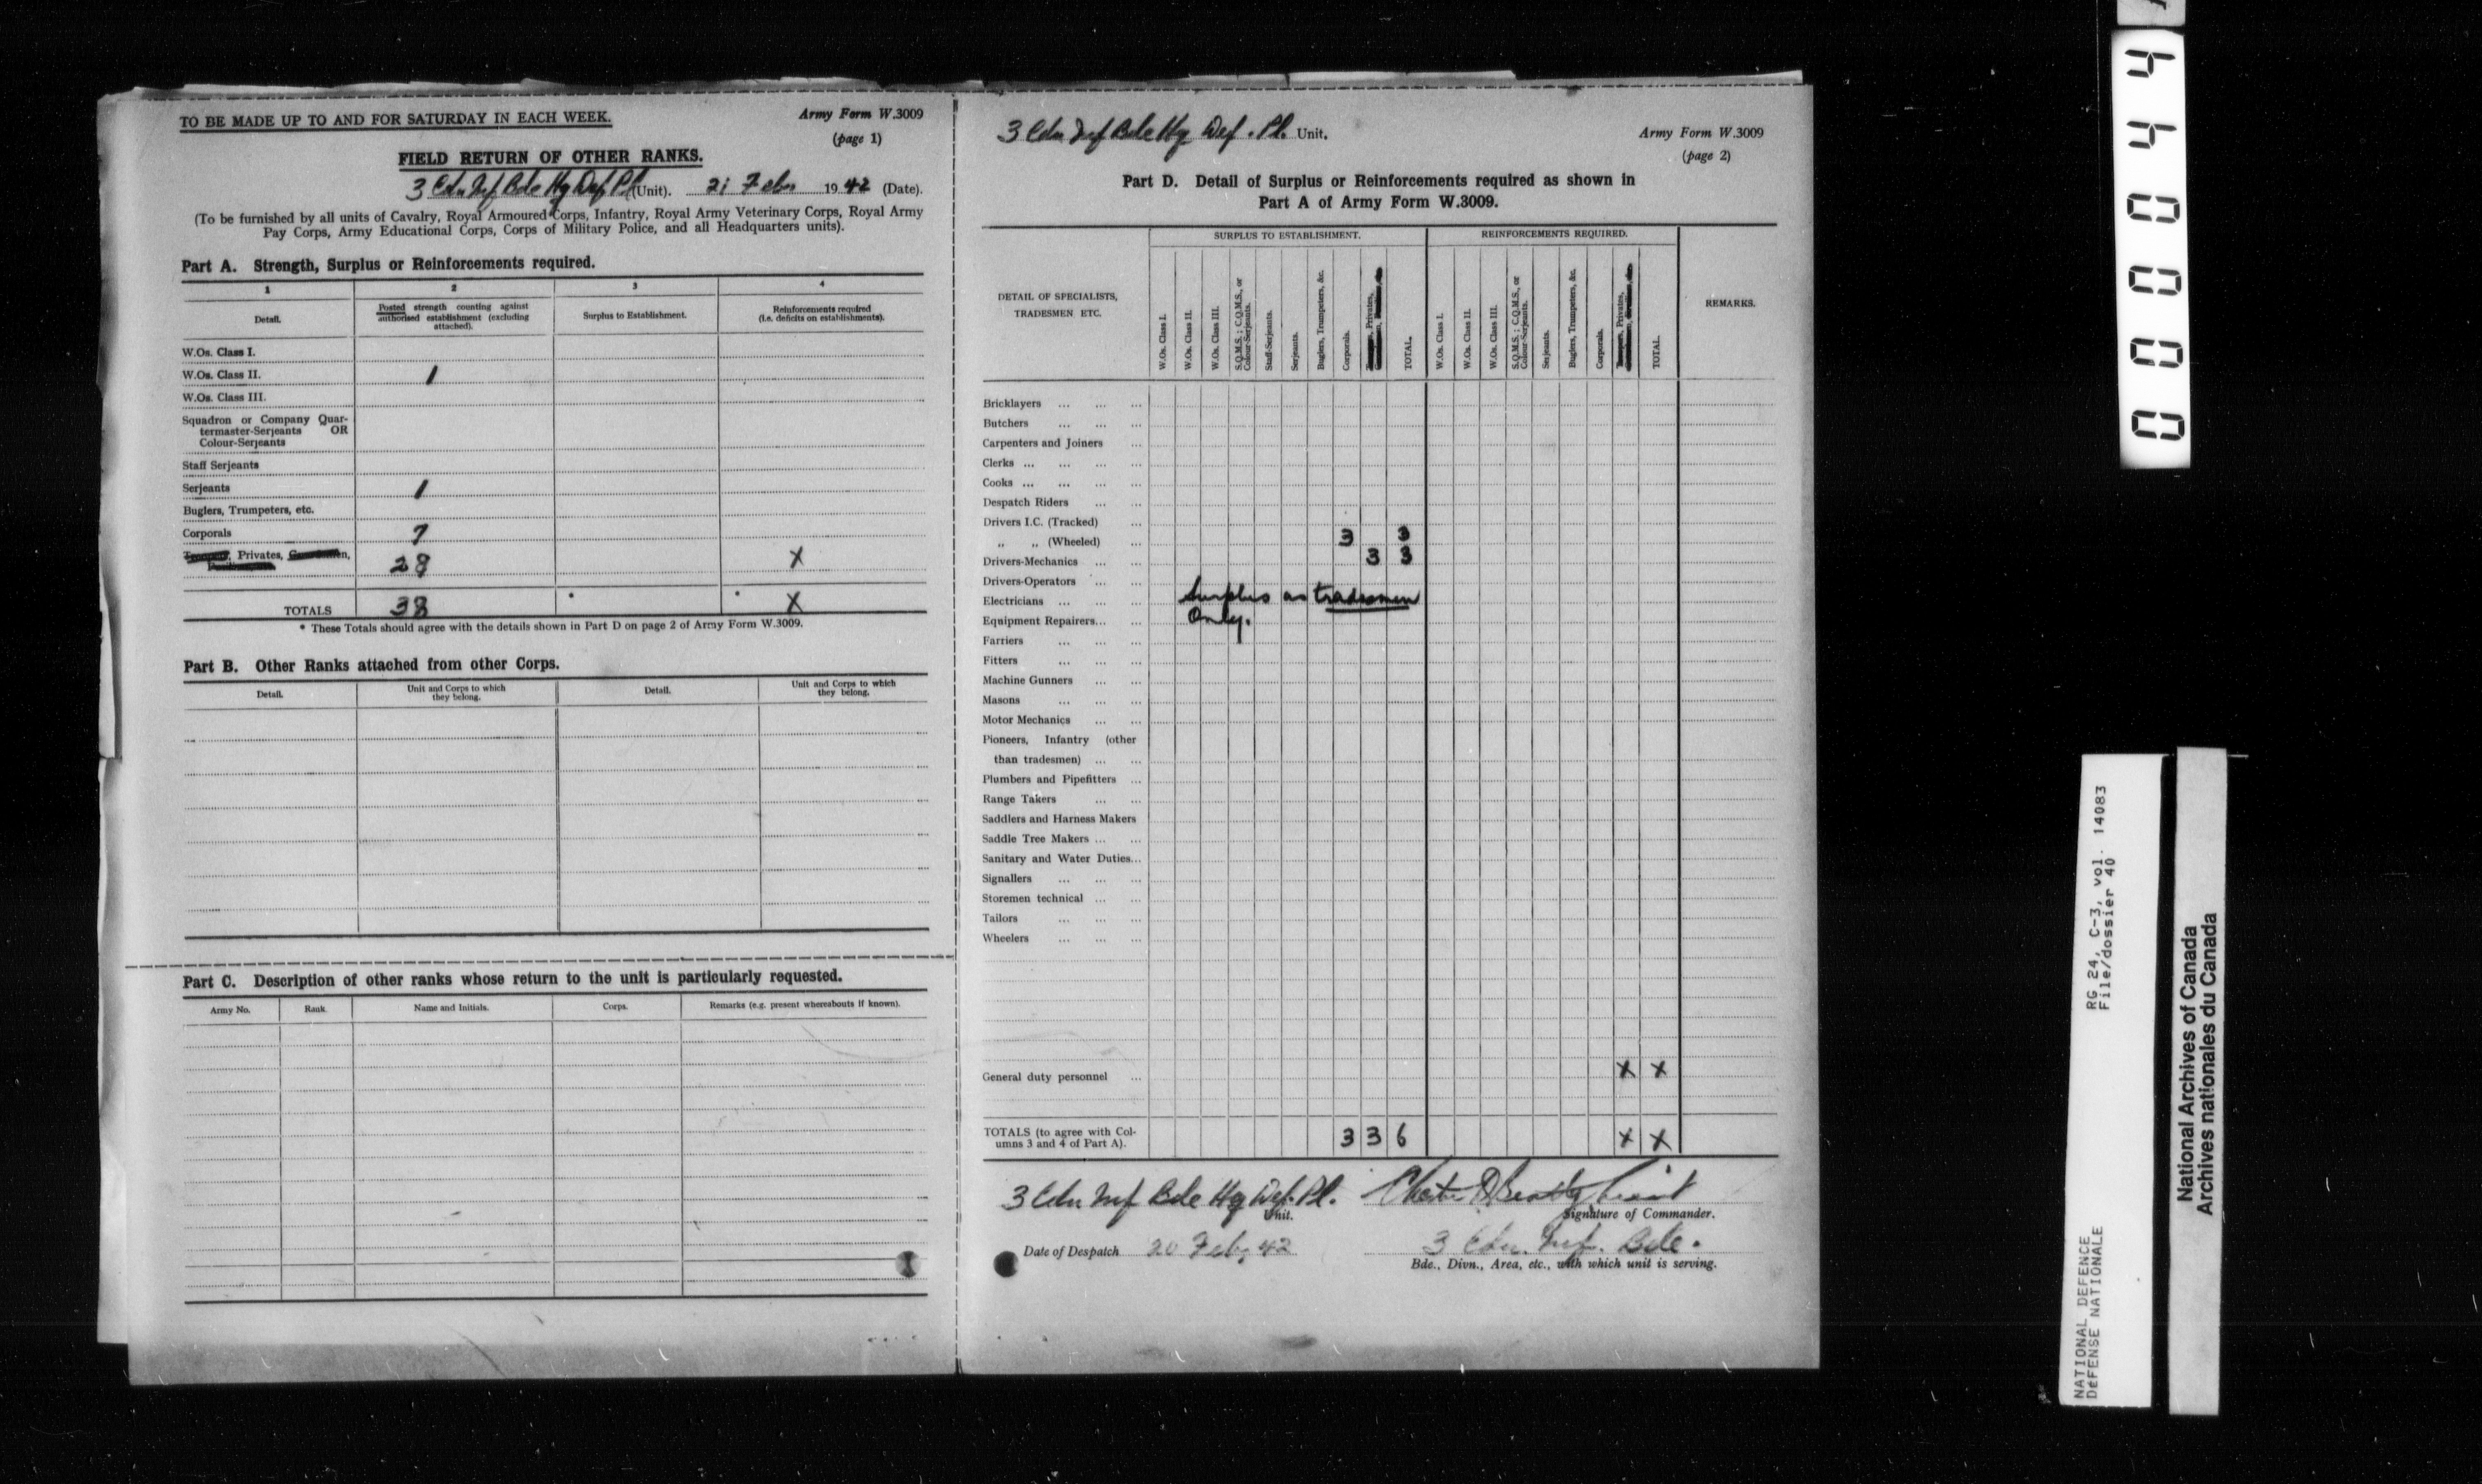 TO BE MADE UP TO AND FOR SATURDAY IN EACH WEEK.
Army Form W.3009
(page 1)
FIELD RETURN OF OTHER RANKS.
3 Cdn Inf Bde Hq Def Pl (Unit). 21 Feb 1942 (Date).
(To be furnished by all units of Cavalry, Royal Armoured Corps, Infantry, Royal Army Veterinary Corps, Royal Army
Pay Corps, Army Educational Corps, Corps of Military Police, and all Headquarters units).
Part A. Strength, Surplus or Reinforcements required.
1 2 3 4
Detail.
Posted strength counting against
authorised establishment (excluding
attached).
Surplus to Establishment.
Reinforcements required
(i.e. deficits on establishments).
W.Os. Class I.
W.Os. Class II. 1
W.Os. Class III.
Squadron or Company Quar-
termaster-Serjeants OR
Colour-Serjeants
Staff Serjeants
Serjeants 1
Buglers, Trumpeters, etc.
Corporals 7
Privates, 28 X
TOTALS 38 * * X
* These Totals should agree with the details shown in Part D on page 2 of Army Form W.3009.
Part B. Other Ranks attached from other Corps.
Detail.
Unit and Corps to which
they belong.
Detail.
Unit and Corps to which
they belong.
Part C. Description of other ranks whose return to the unit is particularly requested.
Army No. Rank Name and Initials. Corps. Remarks (e.g. present whereabouts if known).
3 Cdn Inf Bde Hq Def. Pl. Unit.
Army Form W.3009
(page 2)
Part D. Detail of Surplus or Reinforcements required as shown in
Part A of Army Form W.3009.
SURPLUS TO ESTABLISHMENT. REINFORCEMENTS REQUIRED.
DETAIL OF SPECIALISTS,
TRADESMEN ETC.
W.Os. Class I.
W.Os. Class II.
W.Os. Class III.
S.Q.M.S.; C.Q.M.S., or
Colour-Serjeants.
Staff-Serjeants.
Serjeants.
Buglers, Trumpeters, &c.
Corporals.
Privates,
TOTAL.
W.Os. Class I.
W.Os. Class II.
W.Os. Class III.
S.Q.M.S.; C.Q.M.S., or
Colour-Serjeants.
Serjeants.
Buglers, Trumpeters, &c.
Corporals.
Privates,
TOTAL.
REMARKS.
Bricklayers ... ... ...
Butchers ... ... ...
Carpenters and Joiners ...
Clerks ... ... ... ...
Cooks ... ... ... ...
Despatch Riders ... ...
Drivers I.C. (Tracked) ...
„ „ (Wheeled) ... 3 3
Drivers-Mechanics ... ... 3 3
Drivers-Operators ... ...
Electricians ... ... ... Surplus as tradesmen
Equipment Repairers... ... Only.
Farriers ... ...
Fitters ... ...
Machine Gunners ... ...
Masons ... ...
Motor Mechanics ... ...
Pioneers, Infantry (other
than tradesmen) ... ...
Plumbers and Pipefitters ...
Range Takers ... ...
Saddlers and Harness Makers
Saddle Tree Makers ... ...
Sanitary and Water Duties...
Signallers ... ... ...
Storemen technical ... ...
Tailors ... ... ...
Wheelers ... ... ...
General duty personnel ... X X
TOTALS (to agree with Col-
umns 3 and 4 of Part A). 3 3 6 X X
3 Cdn Inf Bde Hq Def. Pl.
Unit.
Signature of Commander.
Date of Despatch 20 Feb, 42
3 Cdn. Inf. Bde.
Bde., Divn., Area, etc., with which unit is serving.
000044
RG 24, C-3, vol. 14083
File/dossier 40
NATIONAL DEFENCE
DéFENSE NATIONALE
National Archives of Canada
Archives nationales du Canada